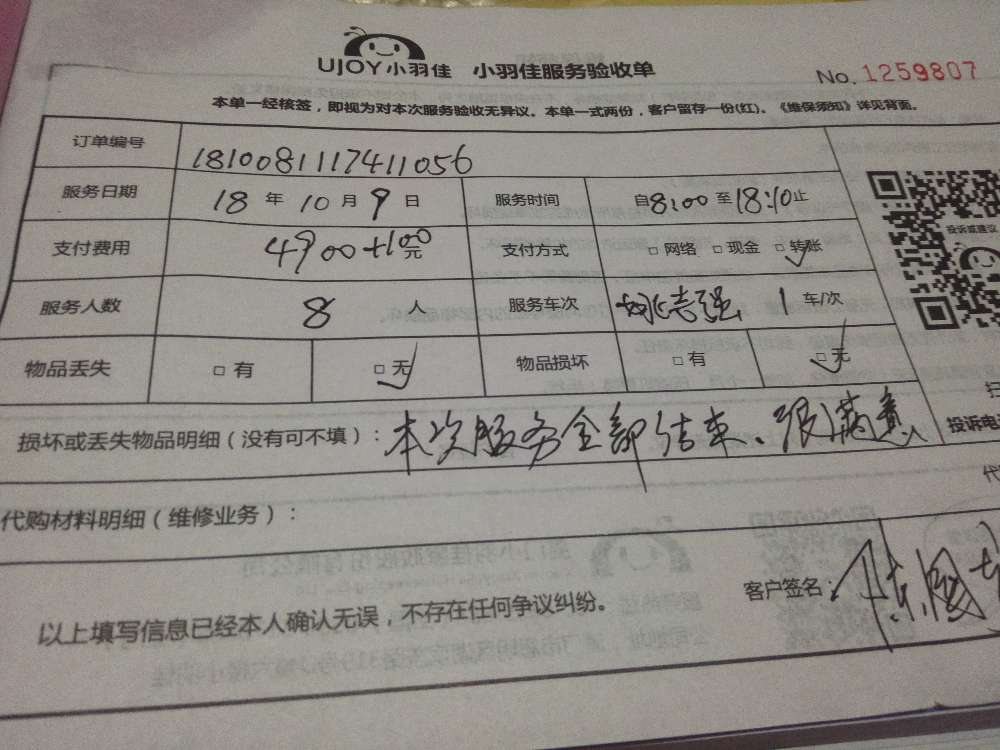 UJOY小羽佳 小羽佳服务验收单
No. 1259807
本单一经核签，即视为对本次服务验收无异议。本单一式两份，客户留存一份(红)。《维保须知》详见背面。
订单编号 1810081117411056
服务日期 18 年 10 月 9 日 服务时间 自8:00至18:10止
支付费用 4900+100元 支付方式 □ 网络 □ 现金 □ 转账
投诉或建议
服务人数 8 人 服务车次 姚志强 1 车/次
物品丢失 □ 有 □ 无 物品损坏 □ 有 □ 无
损坏或丢失物品明细（没有可不填）： 本次服务全部结束、很满意
投诉电
代购材料明细（维修业务）：
客户签名：
以上填写信息已经本人确认无误，不存在任何争议纠纷。